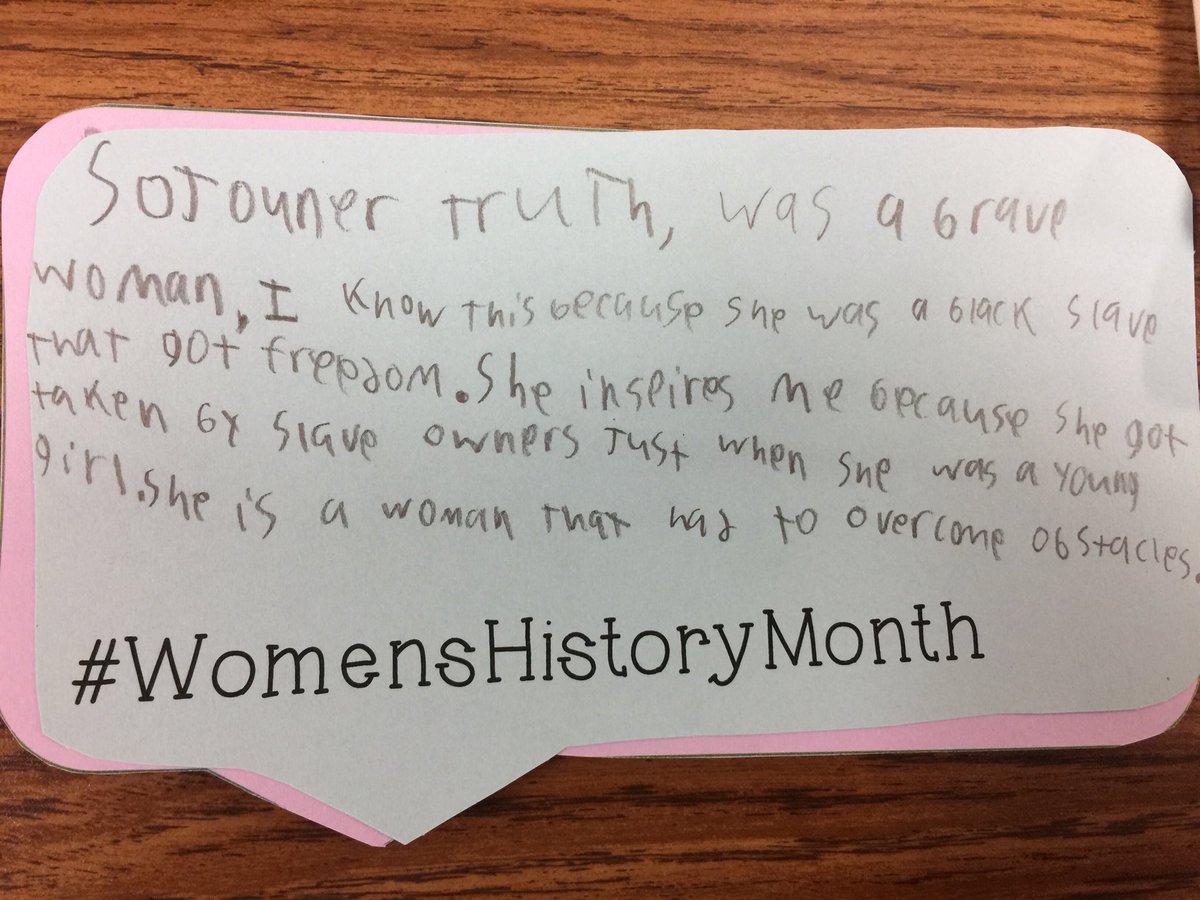 Sojouner truth, was a brave
woman, I know this because she was a black slave
that got freedom. She inspires me because she got
taken by slave owners just when she was a young
girl. she is a woman that had to overcome obstacles.
#WomensHistoryMonth